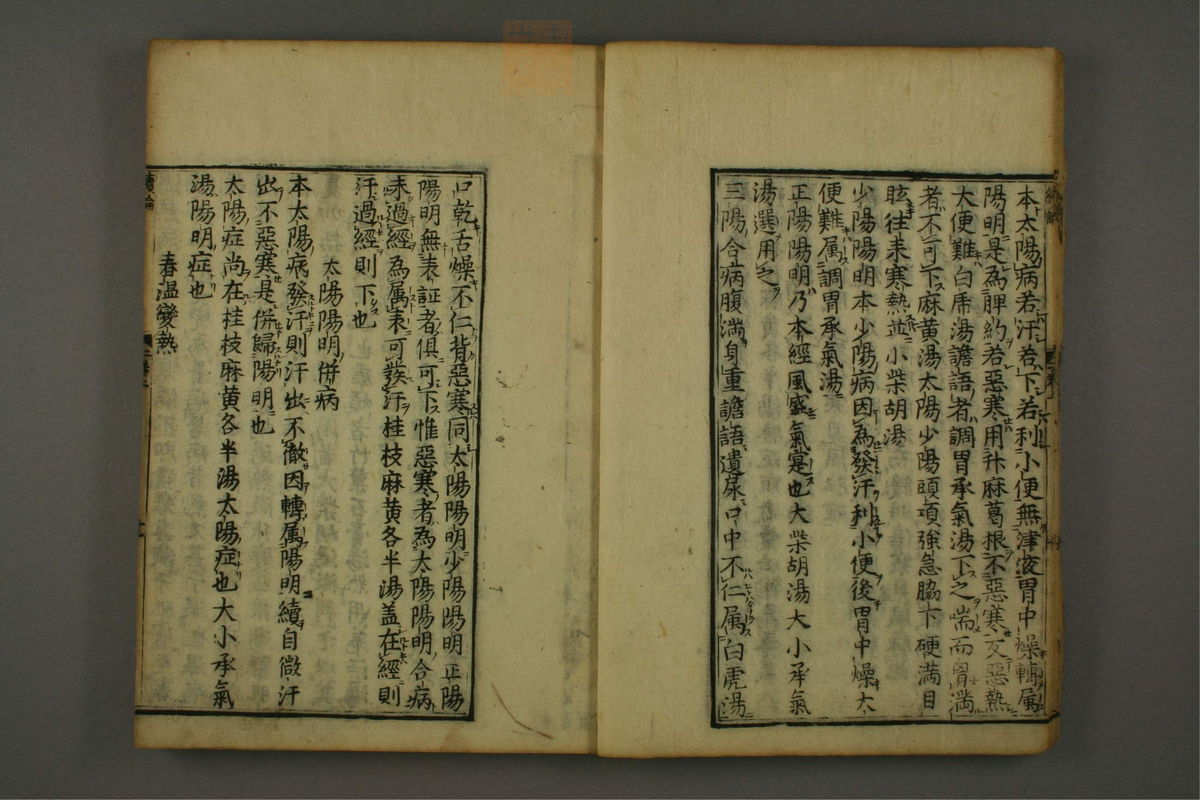 本太陽病若汗若下若利小便無津液胃中燥轉属
陽明是為脾約若惡寒用升麻葛根不惡寒反惡熱
大便難白虎湯譫語者調胃承氣湯下之喘而胷満
者不可下麻黄湯太陽少陽頭項強急脇下硬満目
眩徃来寒熱並小柴胡湯
少陽陽明本少陽病因為發汗利小便後胃中燥大
便難属調胃承氣湯
正陽陽明乃本經風盛氣寔也大柴胡湯大小承氣
湯選用之
三陽合病腹満身重譫語遺尿口中不仁属白虎湯
口乾舌燥不仁背惡寒同太陽陽明少陽陽明正陽
陽明無表証者俱可下惟惡寒者為太陽陽明合病
未過經為属表可發汗桂枝麻黄各半湯盖在經則
汗過經則下也
太陽陽明併病
本太陽病發汗則汗出不徹因轉属陽明續自微汗
出不惡寒是併歸陽明也
太陽症尚在桂枝麻黄各半湯太陽症也大小承氣
湯陽明症也
春温變熱